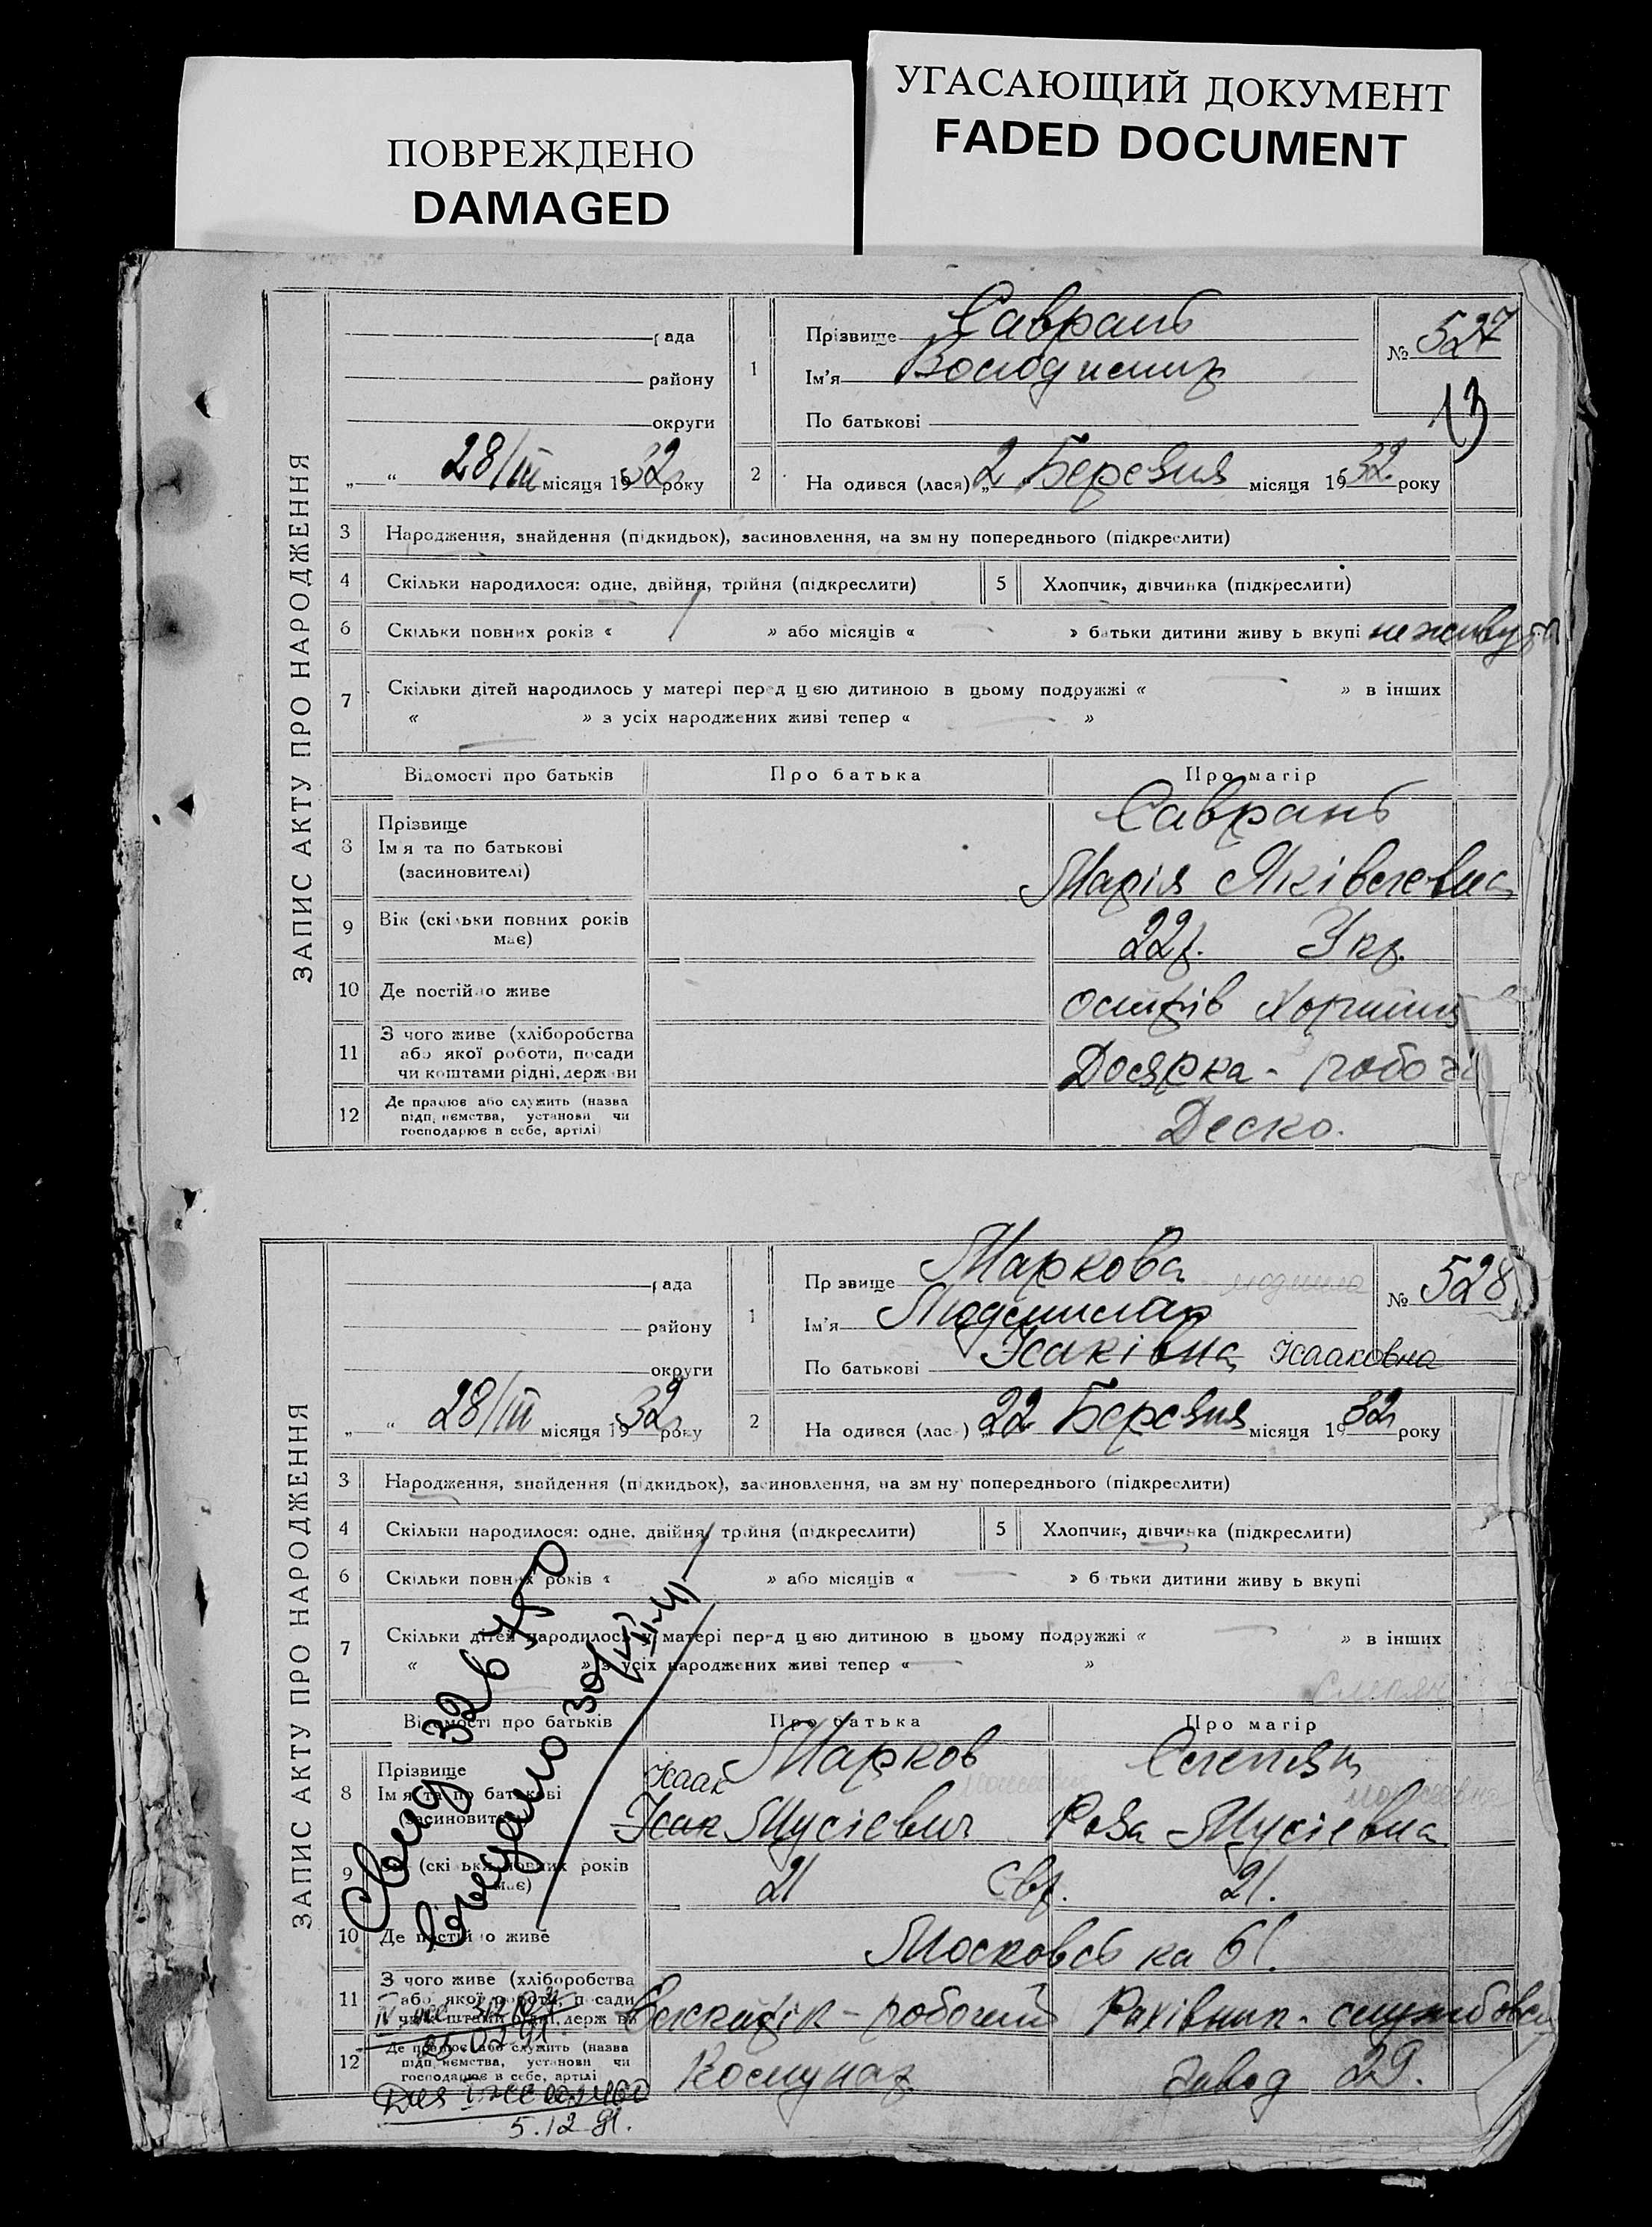 ПОВРЕЖДЕНО
DAMAGED
УГАСАЮЩИЙ ДОКУМЕНТ
FADED DOCUMENT
ЗАПИС АКТУ ПРО НАРОДЖЕННЯ
рада
району
округи
„ “ 28/III місяця 1932 року
1
Прізвище Саврань
Ім'я Володимир
По батькові
№ 527
13
2
На одився (лася) „2 Березня місяця 1932 року
3 Народження, знайдення (підкидьок), засиновлення, на зм ну попереднього (підкреслити)
4 Скільки народилося: одне, двійня, трійня (підкреслити)
5 Хлопчик, дівчинка (підкреслити)
6 Скільки повних років « » або місяців « » батьки дитини живу ь вкупі не живуть
7 Скільки дітей народилось у матері перед цією дитиною в цьому подружжі « » в інших
« » з усіх народжених живі тепер « »
Відомості про батьків Про батька Про матір
8 Прізвище
Ім я та по батькові
(засиновителі)
Саврань
Марія Яківлевна
9 Вік (скільки повних років
має)
22р. Укр.
10 Де постійно живе
острів Хортиця
11 З чого живе (хліборобства
або якої роботи, посади
чи коштами рідні, держави
Доярка - робоч
12 Де працює або служить (назва
підп, иємства, установи чи
господарює в себе, артілі)
Деско.
ЗАПИС АКТУ ПРО НАРОДЖЕННЯ
рада
району
округи
„ “ 28/III місяця 1932 року
1
Пр звище Маркова людмила
Ім'я Людмилар
По батькові Ісаківна Исааковна
№ 528
2
На одився (лас ) „22 Березня місяця 1932 року
3 Народження, знайдення (підкидьок), засиновлення, на зм ну попереднього (підкреслити)
4 Скільки народилося: одне, двійня, трійня (підкреслити)
5 Хлопчик, дівчинка (підкреслити)
6 Скільки повних років « » або місяців « » б тьки дитини живу ь вкупі
7 Скільки дітей народилось у матері перед цією дитиною в цьому подружжі « » в інших
« » з усіх народжених живі тепер « »
Відомості про батьків Про батька Про матір
8 Прізвище
Ім я та по батькові
(засиновителі)
Марков
Исаак
Ісак Мусієвич
Роза Мусієвна
моисеевна
9 Вік (скі ьки повних років
має)
21 Євр. 21.
10 Де постійно живе
Московська 61.
11 З чого живе (хліборобства
або якої роботи, посади
чи коштами рідні, держ ви
робочий
Рахівник - службовец
12 Де працює або служить (назва
підп, иємства, установи чи
господарює в себе, артілі
Комунар
завод 29.
5.12 91.